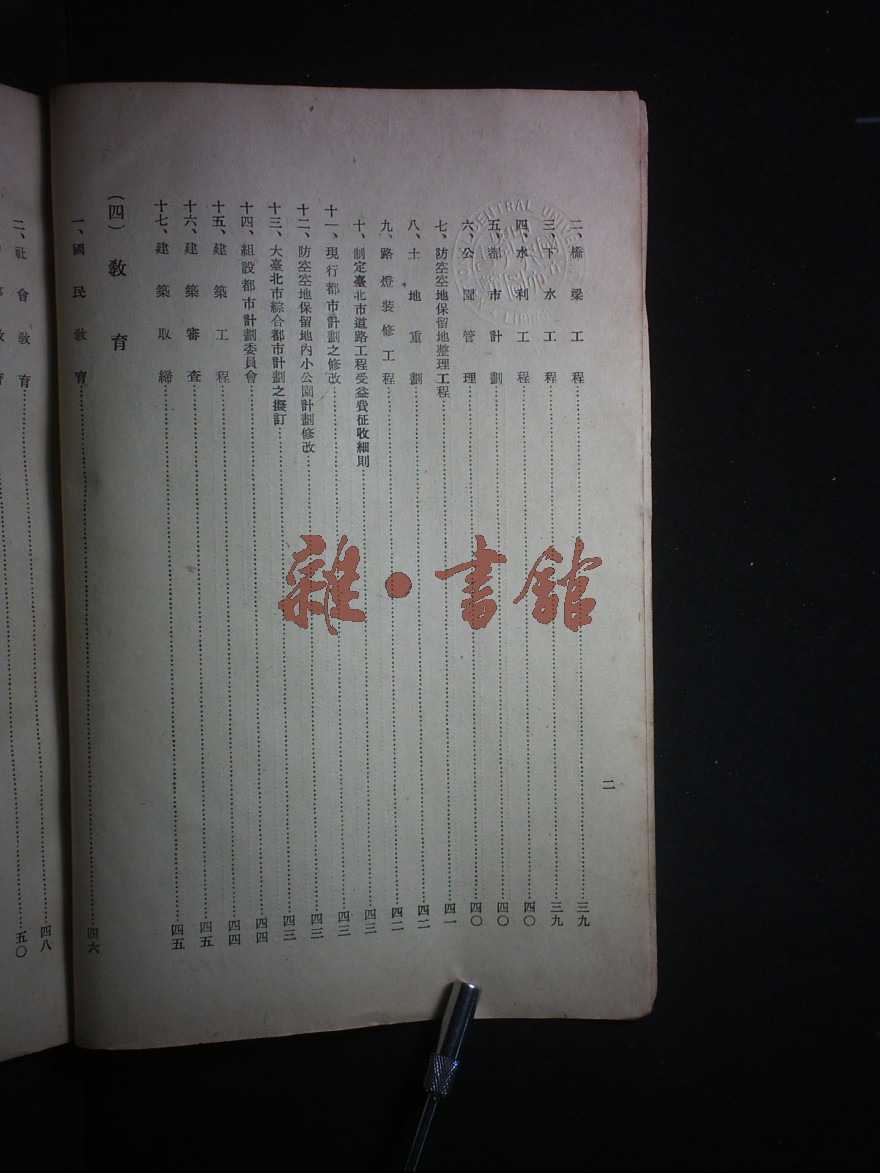 二、橋梁工程……三九
三、下水工程……三九
四、水利工程……四〇
五、都市計劃……四〇
六、公園管理……四〇
七、防空空地保留地整理工程……四一
八、土地重劃……四二
九、路燈裝修工程……四二
十、制定臺北市道路工程受益費征收細則……四三
十一、現行都市計劃之修改……四三
十二、防空空地保留地內小公園計劃修改……四三
十三、大臺北市綜合都市計劃之擬訂……四三
十四、組設都市計劃委員會……四四
十五、建築工程……四四
十六、建築審查……四五
十七、建築取締……四五
(四) 教育
一、國民教育……四六
二、社會教育……四八
教育……五〇
二
雜・書館
CENTRAL UNIVE
LIBRAR